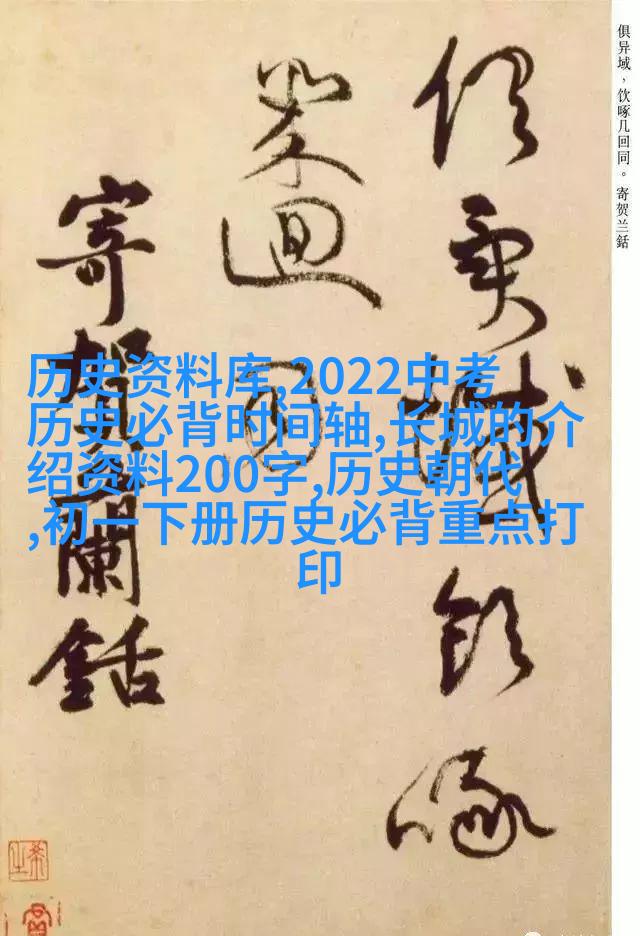 俱异域，饮啄几回同。寄贺兰銛
俱異域飲啄
幾迴同
寄賀蘭銛
历史资料库,2022中考
历史必背时间轴,长城的介
绍资料200字,历史朝代
,初一下册历史必背重点打
印